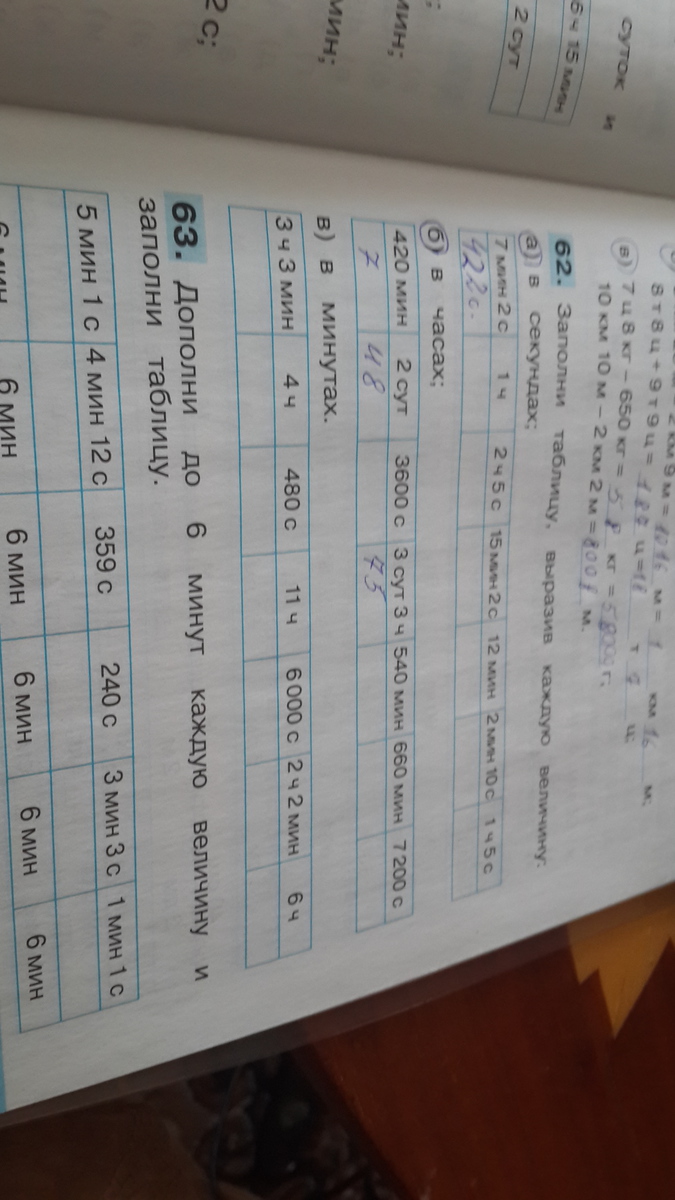 суток и
6 ч 15 мин
2 сут
мин;
мин;
2 с;
2 км 9 м = 1016 м = 1 км 16 м;
8 т 8 ц + 9 т 9 ц = ц = т ц;
в) 7 ц 8 кг – 650 кг = 58 кг = г;
10 км 10 м – 2 км 2 м = 8008 м.
62. Заполни таблицу, выразив каждую величину:
а) в секундах;
7 мин 2 с 1 ч 2 ч 5 с 15 мин 2 с 12 мин 2 мин 10 с 1 ч 5 с
422 с.
б) в часах;
420 мин 2 сут 3600 с 3 сут 3 ч 540 мин 660 мин 7200 с
7 48 75
в) в минутах.
3 ч 3 мин 4 ч 480 с 11 ч 6000 с 2 ч 2 мин 6 ч
63. Дополни до 6 минут каждую величину и
заполни таблицу.
5 мин 1 с 4 мин 12 с 359 с 240 с 3 мин 3 с 1 мин 1 с
6 мин 6 мин 6 мин 6 мин 6 мин 6 мин